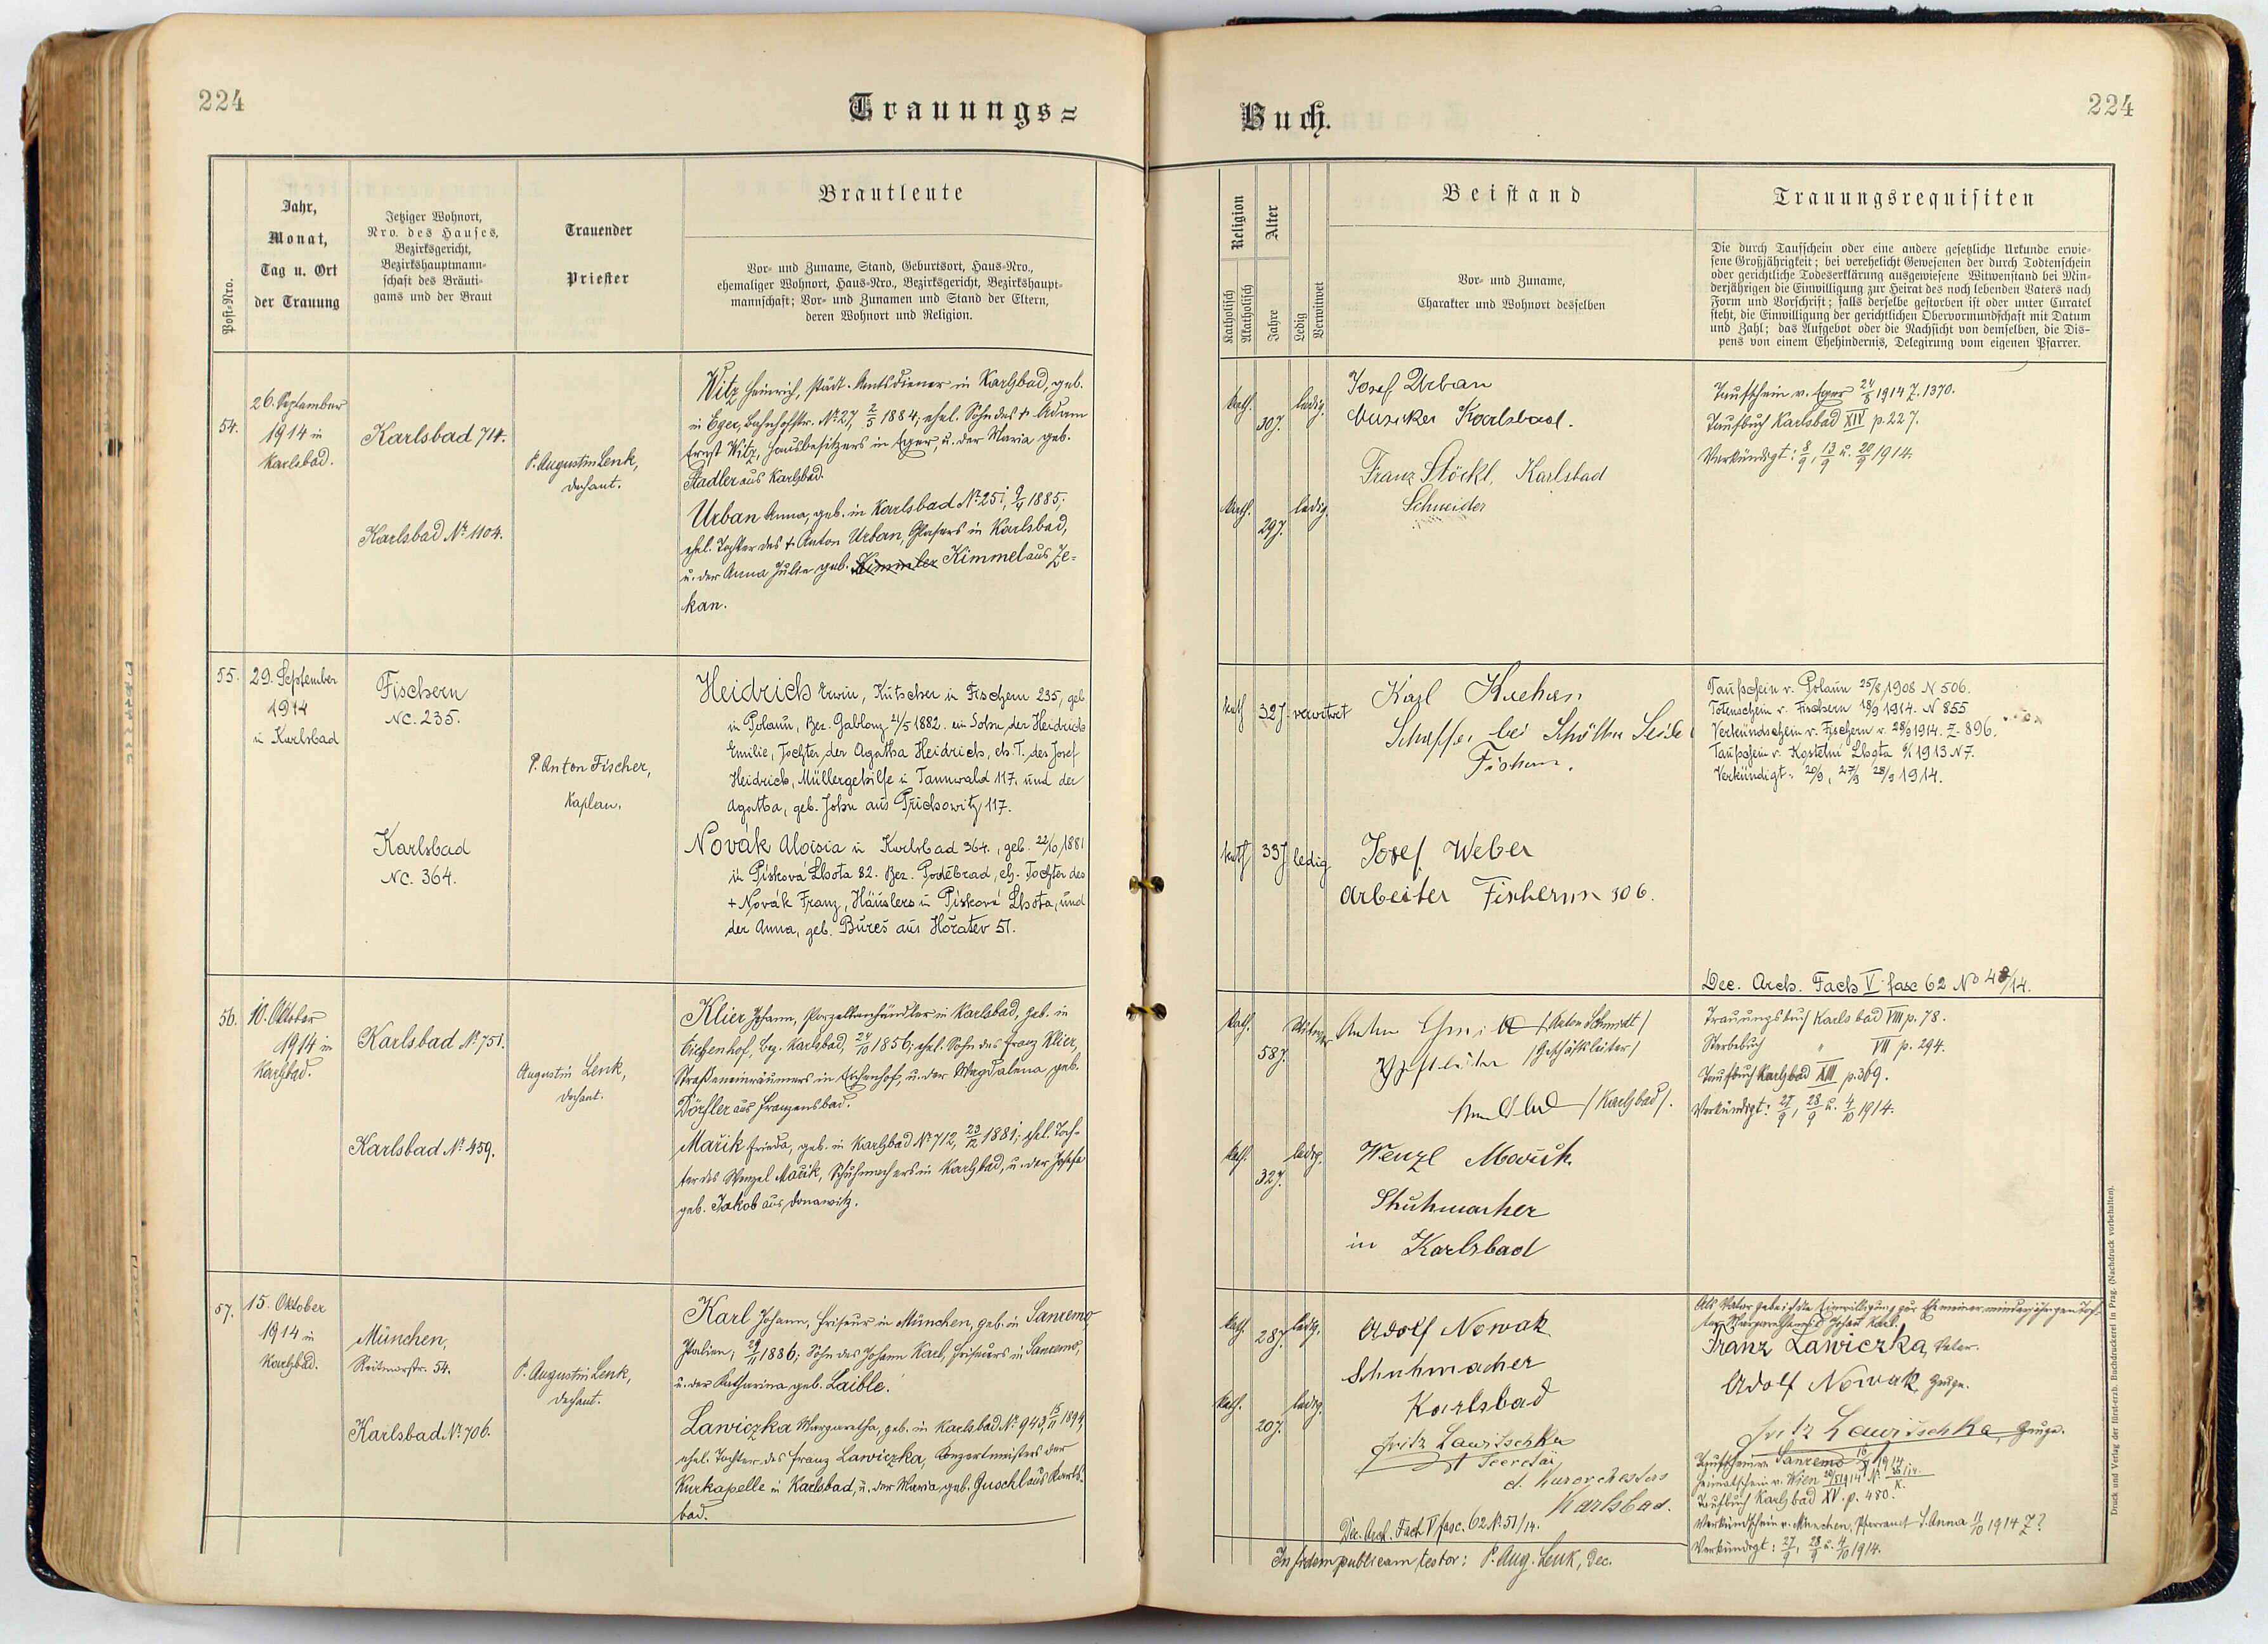 224
Trauungs=
Post-Nro.
Jahr,
Monat,
Tag u. Ort
der Trauung
Jetziger Wohnort,
Nro. des Hauses,
Bezirksgericht,
Bezirkshauptmann-
schaft des Bräuti-
gams und der Braut
Trauender
Priester
Brautleute
Vor- und Zuname, Stand, Geburtsort, Haus-Nro.,
ehemaliger Wohnort, Haus-Nro., Bezirksgericht, Bezirkshaupt-
mannschaft; Vor- und Zunamen und Stand der Eltern,
deren Wohnort und Religion.
54.
26. September
1914 in
Karlsbad.
Karlsbad 714.
Karlsbad Nr. 1104.
P. Augustin Lenk,
Dechant.
Witz Heinrich, städt. Amtsdiener in Karlsbad, geb.
in Eger, Bahnhofstr. Nr. 27, 2/5 1884; ehel. Sohn des + Adam
Ernst Witz, Hausbesitzers in Eger, u. der Maria geb.
Stadler aus Karlsbad.
Urban Anna, geb. in Karlsbad Nr. 25, 9/4 1885;
ehel. Tochter des + Anton Urban, Glasers in Karlsbad,
u. der Anna Julie geb. Kimmel aus Ze-
kan.
55.
29. September
1914
in Karlsbad
Fischern
NC. 235.
Karlsbad
NC. 364.
P. Anton Fischer,
Kaplan.
Heidrich Erwin, Kutscher in Fischern 235, geb
in Polaun, Bez. Gablonz 21/5 1882. ein Sohn der Heidrich
Emilie, Tochter der Agatha Heidrich, eh. T. des Josef
Heidrich, Müllergehilfe in Tannwald 117. und der
Agatha, geb. John aus Prichowitz 117.
Novák Aloisia in Karlsbad 364., geb. 22/10 1881
in Písková Lhota 82. Bez. Poděbrad, eh. Tochter des
+ Novák Franz, Häuslers in Písková Lhota, und
der Anna, geb. Bureš aus Hořatev 51.
56.
10. Oktober
1914 in
Karlsbad.
Karlsbad Nr. 751.
Karlsbad Nr. 459.
Augustin Lenk,
Dechant.
Klier Johann, Porzellanhändler in Karlsbad, geb. in
Eichenhof, Bez. Karlsbad, 24/10 1856; ehel. Sohn des Franz Klier,
Straßeneinräumers in Eichenhof, u. der Magdalena geb.
Dörfler aus Franzensbad.
Mařik Frieda, geb. in Karlsbad Nr. 712, 23/12 1881; ehel. Toch-
ter des Wenzel Mařik, Schuhmachers in Karlsbad, u. der Josefa
geb. Jakob aus Donawitz.
57.
15. Oktober
1914 in
Karlsbad.
München,
Reitmorstr. 54.
Karlsbad Nr. 706.
P. Augustin Lenk,
Dechant.
Karl Johann, Friseur in München, geb. in Sanremo
Italien, 29/11 1886; Sohn des Johann Karl, Friseurs in Sanremo,
u. der Katharina geb. Laible.
Lawiczka Margaretha, geb. in Karlsbad Nr. 943, 15/11 1894,
ehel. Tochter des Franz Lawiczka, Konzertmeisters der
Kurkapelle in Karlsbad, u. der Maria geb. Guschl aus Karls-
bad.
Buch.
224
Religion
Katholisch
Akatholisch
Alter
Jahre
Ledig
Verwitwet
Beistand
Vor- und Zuname,
Charakter und Wohnort desselben
Trauungsrequisiten
Die durch Taufschein oder eine andere gesetzliche Urkunde erwie-
sene Großjährigkeit; bei verehelicht Gewesenen der durch Todtenschein
oder gerichtliche Todeserklärung ausgewiesene Witwenstand bei Min-
derjährigen die Einwilligung zur Heirat des noch lebenden Vaters nach
Form und Vorschrift; falls derselbe gestorben ist oder unter Curatel
steht, die Einwilligung der gerichtlichen Obervormundschaft mit Datum
und Zahl; das Aufgebot oder die Nachsicht von demselben, die Dis-
pens von einem Ehehindernis, Delegirung vom eigenen Pfarrer.
kath.
30J.
ledig.
kath.
29J.
ledig.
Josef Urban
Musiker Karlsbad.
Franz Stöckl, Karlsbad
Schneider
Taufschein v. Eger 24/8 1914 Z. 1370.
Taufbuch Karlsbad XIV p. 227.
Verkündigt: 8/9, 13/9 u. 20/9 1914.
kath
32J.
verwitwet
kath
33J
ledig
Karl
Schaffer bei
Fischern.
Josef Weber
Arbeiter Fischern 306.
Taufschein v. Polaun 25/8 1908 N 506.
Totenschein v. Fischern 18/9 1914. N 855
Verkündschein v. Fischern v. 28/9 1914. Z. 896.
Taufschein v. Kostelní Lhota 1913 N 7.
Verkündigt: 20/9, 27/9 28/9 1914.
Dec. Arch. Fach V fasc 62 No 48/14.
kath.
58J.
Witwer
kath.
32J.
ledig.
/Anton Schmidt/
/Geschäftsleiter/
/Karlsbad/.
Wenzl Mařik
Schuhmacher
in Karlsbad
Trauungsbuch Karlsbad VIII p. 78.
Sterbebuch " VII p. 294.
Taufbuch Karlsbad XIII p. 309.
Verkündigt: 27/9, 28/9 u. 4/10 1914.
kath.
28J.
ledig.
kath.
20J.
ledig.
Adolf Nowak
Schuhmacher
Karlsbad
Fritz Lawitschka
Secretär
d. Kurorchesters
Karlsbad.
Dec. Arch. Fach V fasc. 62 N. 51/14.
In fidem publicam testor: P. Aug. Lenk, Dec.
Als Vater gebe ich die Einwilligung zur Ehe meiner minderjährigen Toch-
ter Margaretha mit Johann Karl.
Franz Lawiczka, Vater.
Adolf Nowak, Zeuge.
Fritz Lawitschka, Zeuge.
Taufschein v. Sanremo 1914
Heimatschein v. Wien 1914
Taufbuch Karlsbad XV. p. 480.
Verkündschein v. München, Pfarramt S. Anna 11/10 1914 Z?
Verkündigt: 27/9, 28/9 u. 4/10 1914.
Druck und Verlag der fürst-erzb. Buchdruckerei in Prag. (Nachdruck vorbehalten).